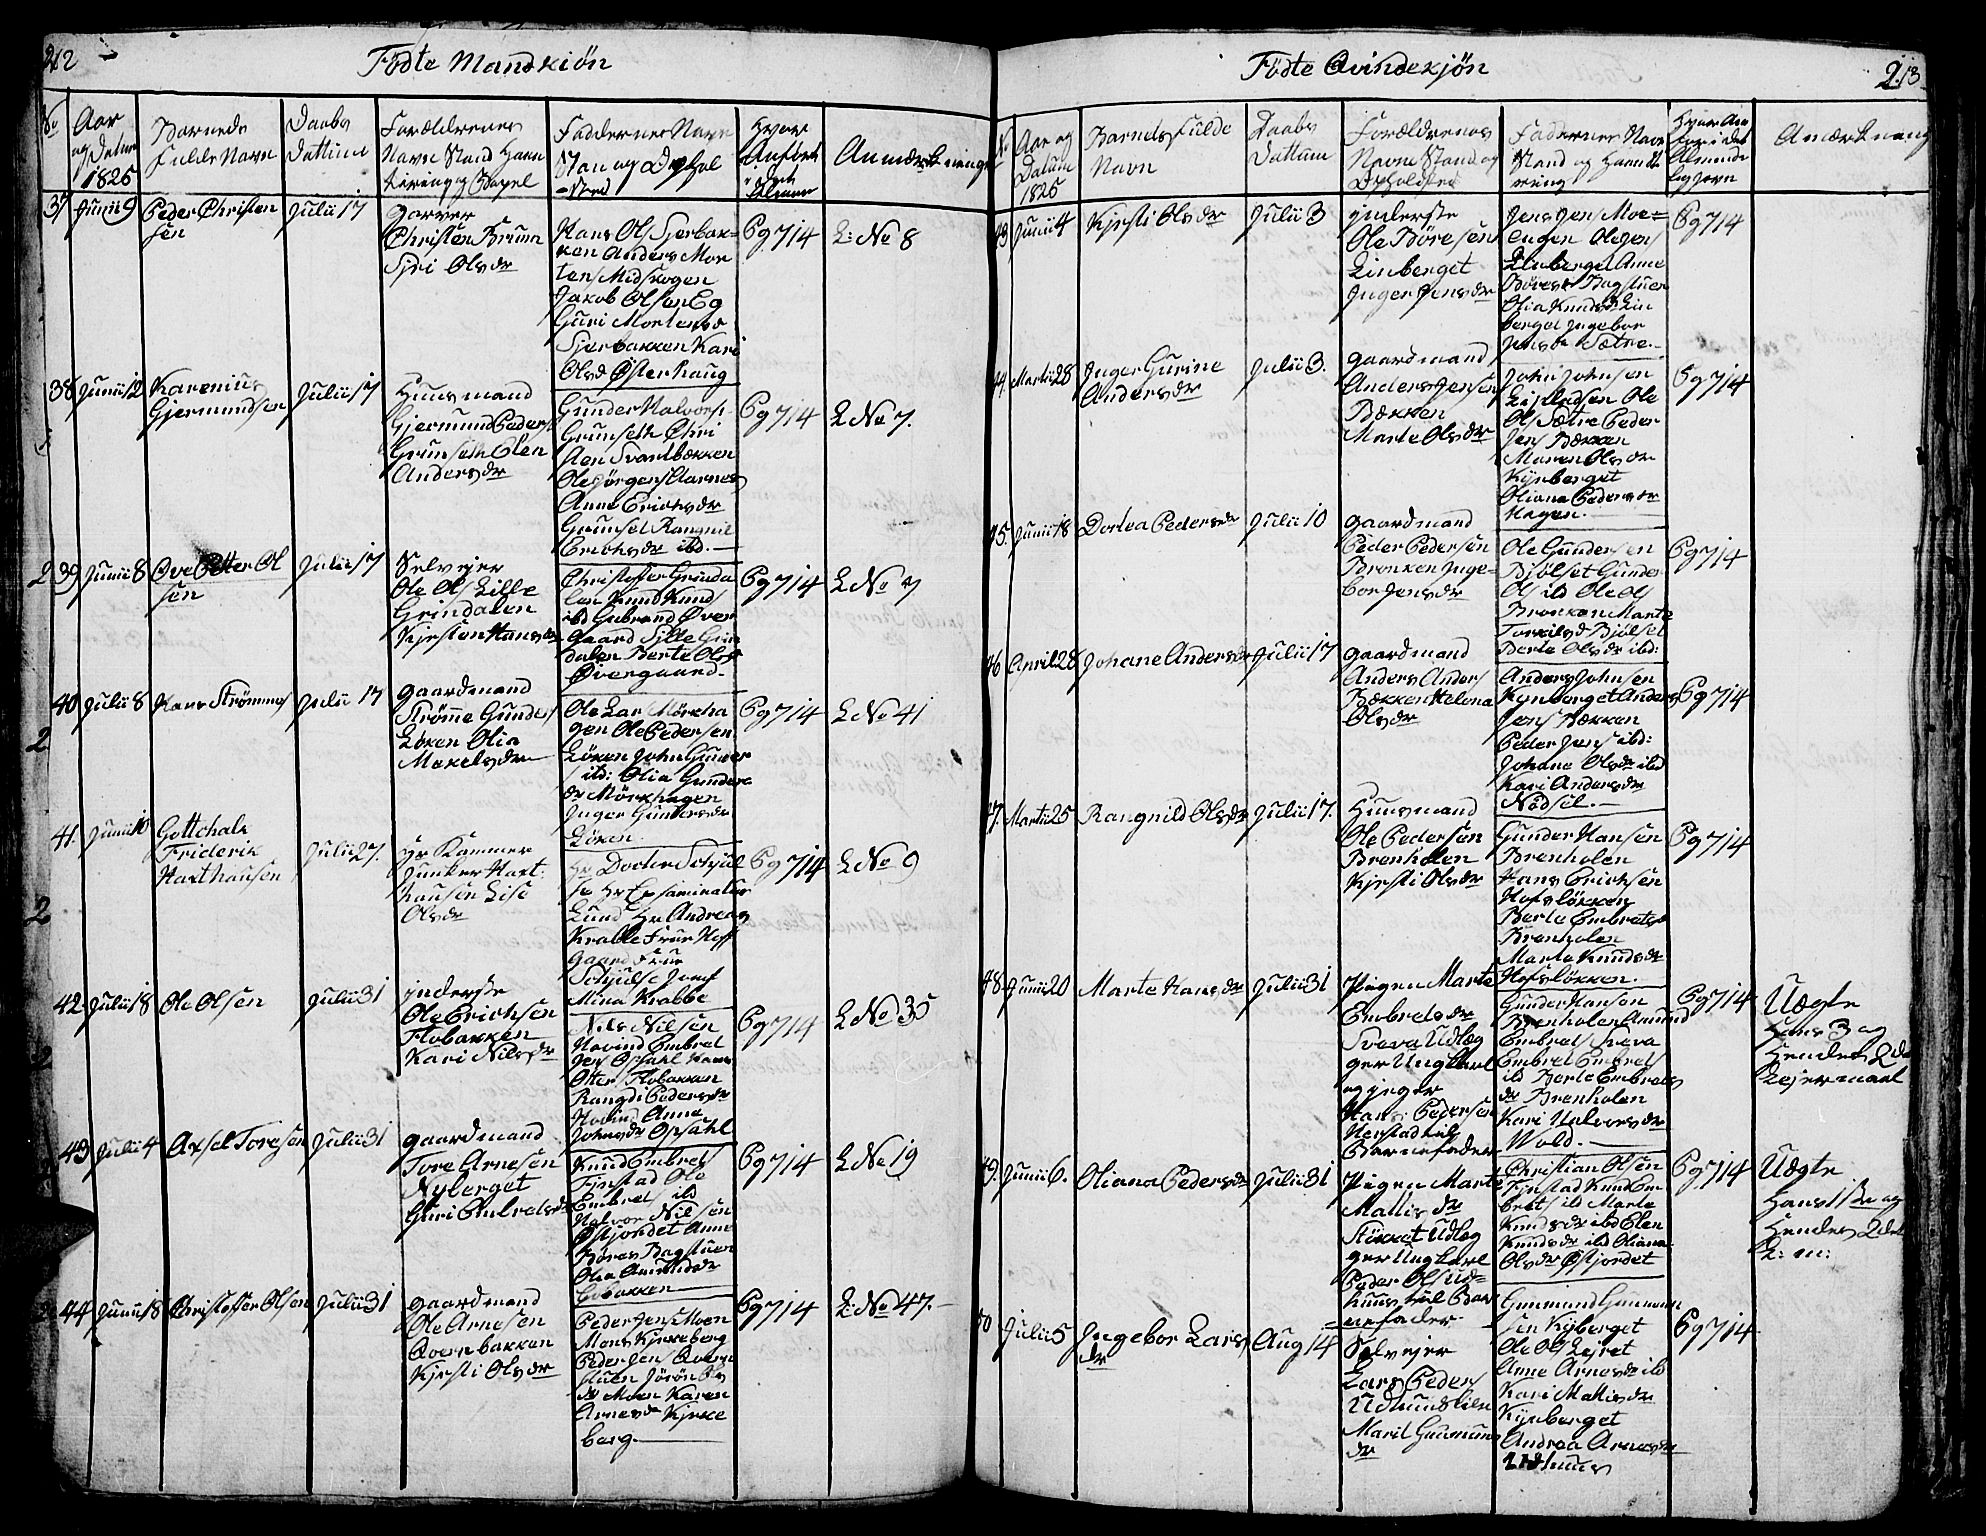 212
Födte Mandkiön
No
Aar
og Datum
1825
Barneds
fulde Navn
Daabs
Dattum
Forældrenes
Navn Stand Haan
tering og Bopel
Faddernes Navn
Stan og Ophol
sted
Hvor
Anført
Anmærkninger
37
Junii 9
Peder Christen
sen
Julii 17
Garver
Christen Bruun
Siri Olsdr
Hans Ols Sjerbak
ken Anders Mor
tens Midskogen
Jakob Olsen Eg
Guri Mortensdr
Sjerbakken Kari
Olsd Østerhaug
Pg 714
L: No 8
38
Junii 12
Karenius
Gjermundsen
Julii 17
Huusmand
Gjermund Peders
Grunseth Elen
Andersdr
Gunder Halvors
Grunseth Chri
Svartbækken
Ole Jörgens Aarnes
Anne Erichsdr
Grunset Rangnil
Erichsdr ibd.
Pg 714
L No 7.
39
Junii 8
Ove Petter Ol
sen
Julii 17
Selvejer
Ole Ols Lille
Grindalen
Kjersten Hansdr
Christoffer Grinda
len Knud Knuds
ibd Gubrand Øver
gaard Sille Grin
dalen Berte Olsd
Øvergaard
Pg 714
L No 7
40
Julii 8
Hans Strömmes
Julii 17
Gaardmand
Strømme Gunders
Löken Olia
Mikelsdr
Ole Lars Mörkha
gen Ole Pedersen
Löken John Gunder
s ibd: Olia Gunders
dr Mörkhagen
Inger Gundersdr
Löken.
Pg 714
L No 41
41.
Junii 10
Gottchalk
Friderik
Haxthausen
Julii 27.
Hr Kammer
Junker Haxt:
hausen Lise
Olsdr
Hr Docter Schjul
se Hr Exsaminatus
Lund Hr Andreas
Krabbe Frue Hoff
gaard Frue
Schjulse Jomf
Mina Krabbe
Pg 714
L No 9
42
Julii 18
Ole Olsen
Julii 31
Inderste
Ole Erichsen
Flobakken
Kari Nilsdr
Nils Nilsen
Hovind Embret
Jens Opsahl Hans
Otters Flobakken
Rangdi Pedersdr
Hovind Anne
Johnsdr Opsahl
Pg 714
L No 35
43
Julii 4
Axsel Toresen
Julii 31
Gaardmand
Tore Arnesen
Nyberget
Guri Embretsdr
Knud Embrets
Fjnstad Ole
Embrets ibd
Halvor Nilsen
Østjordet Anne
Börs Bagstuen
Olia Amundsdr
Gobakken
Pg 714
L No 19
44
Junii 18
Christoffer Olsen
Julii 31
Gaardmand
Ole Arnesen
Qvernbakken
Kjersti Olsdr
Peder Jens Moen
Mons Kjrkeberg
Peder Jens Qvern
stuen Jörön Ols
dr Moen Karen
Arnesdr Kjrke
berg.
Pg 714
L: No 47.
213
Födte Qvindekjön
No
Aar og
Datum
1825
Barnets fulde
Navn
Daabs
Dattum
Forældrenes
Navne Stand og
Opholdsted
Faddernes Navn
Stand og Haandte
ring
Hvor An
fört i det
Alminde
Anmærkning
43
Junii 4
Kjersti Olsdr
Julii 3
Inderste
Ole Böresen
Linberget
Inger Jensdr
Jens Jens Moe=
engen Ole Jens
Linberget Anne
Böresdr Bagstuen
Olia Knudsdr Lin
berget Ingebor
Jensdr Sætre.
Pg 714
44
Martii 28
Inger Gurine
Andersdr
Julii 3.
Gaardmand
Anders Jensen
Bækken
Marte Olsdr
John Johnsen
Ole
Ols Sætre Peder
Jens Bækken
Maren Olsdr
Kynberget
Oliana Pedersdr
Hagen.
Pg 714
45.
Junii 18
Dortea Pedersdr
Julii 10
Gaardmand
Peder Pedersen
Bronken Inge=
bor Jensdr
Ole Gundersen
Bjölset Gunder
Ols ibd Ole Ols
Bronken Marte
Torkilsd Bjölset
Berte Olsdr ibd:
Pg 714
46
April 28
Johane Andersdr
Julii 17
Gaardmand
Anders Anders
Bækken Helena
Olsdr
Anders Johnsen
Kynberget Anders
Jens Bækken
Peder Jens ibd:
Johane Olsdr ibd
Kari Andersdr
Nödset.
Pg 714
47.
Martii 25
Rangnild Olsdr
Julii 17.
Huusmand
Ole Pedersen
Brenholen
Kjersti Olsdr
Gunder Hansen
Brenholen
Hans Erichsen
Hofslökken
Berte Embretsdr
Brenholen
Marte Knudsdr
Hofslökken.
Pg 714
48
Junii 20
Marte Hansdr
Julii 31
Pigen Marte
Embretsdr
Sveva Udlæg
ger Ungkarl
og jeger
Hans Pedersen
Herstad til
Barnefader
Gunder Hansen
Brenholen Amund
Embrets Sveva
Embret Embrets
ibd Berte Embrets
dr Brenholen
Kari Halvorsdr
Wold.
Pg 714
Uægte
Hans 3 og
Hendes 2de
Lejermaal
49.
Junii 6.
Oliana Pedersdr
Julii 31
Pigen Marte
Mattisdr
Stökket Udlæg
ger Ungkarl
Peder Ols Ud=
huus til Bar
nefader
Christian Olsen
Fjnstad Knud Em
brets ibd Marte
Knudsdr ibd Elen
Knudsdr ibd Oliana
Olsdr Østjordet
Pg 714
Uægte
Hans 1ste og
Hendes 2det
L: m:
50
Julii 5
Ingebor Lars
dr
Aug 14
Selvejer
Lars Peders
Udhuuslien
Marit Gunmuns
dr
Gunmund Gunmun
sen Kyberget
Ole Ols Lejret
Anne Arnesdr ibd
Kari Mattisdr
Kynberget
Andrea Arnesdr
Udhuus
Pg 714